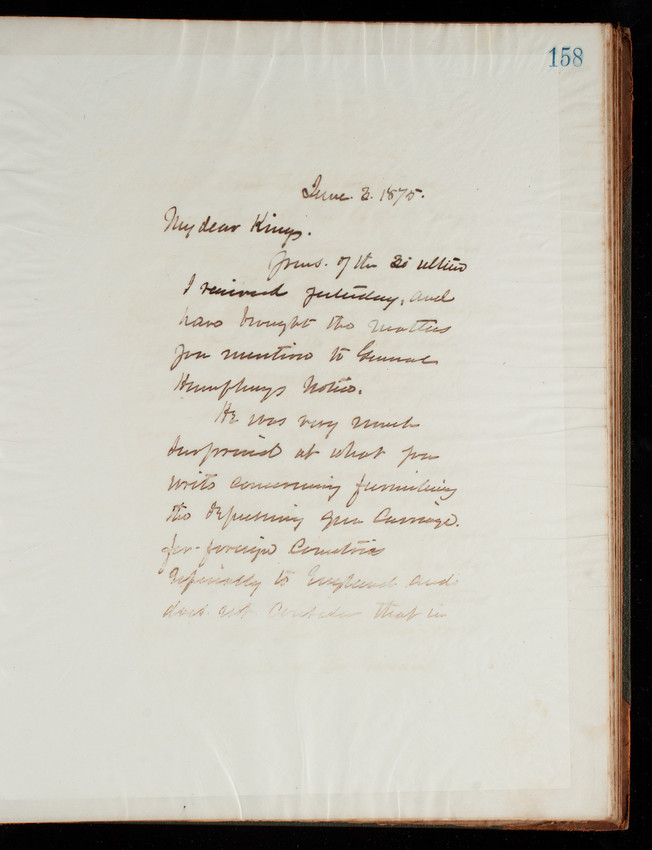 158
June. 3. 1875.
My dear King.
Yours. of the 31 ultimo
I received yesterday, and
have brought the matter
you mention to General
Humphreys Notice.
He was very much
surprised at what you
write concerning furnishing
the depressing gun carriage.
for foreign Countries
Especially to England and
does not consider that in